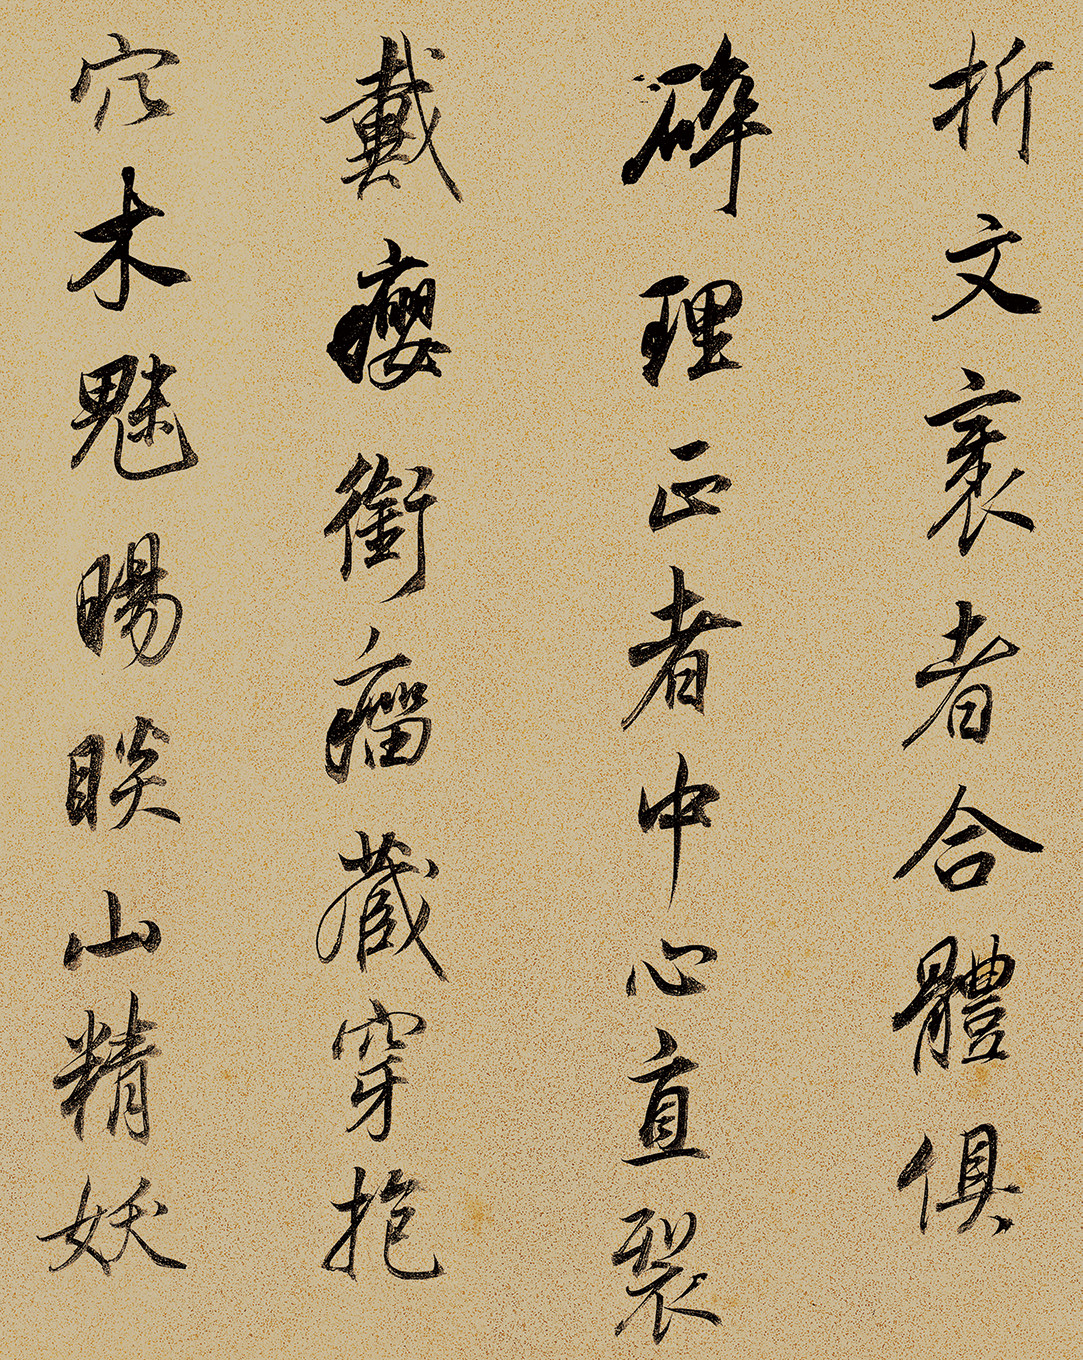 折文袤者合體俱
碎理正者中心直裂
戴癭銜瘤藏穿抱
穴木魅暘睒山精妖